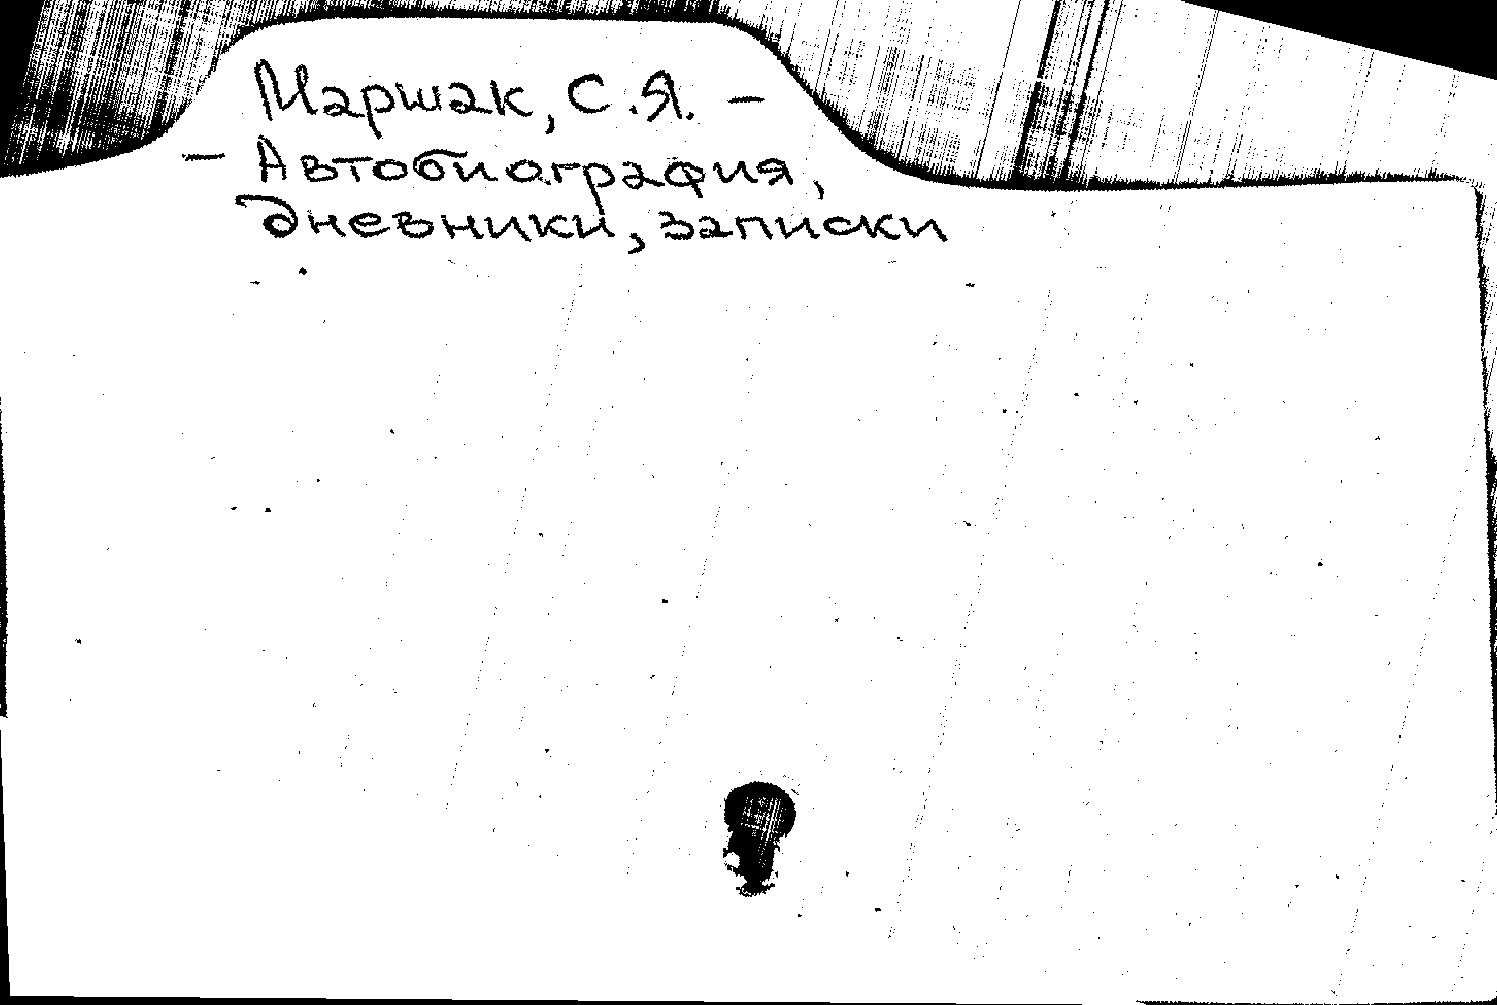 Маршак, С.Я. –
– Автобиография,
дневники, записки